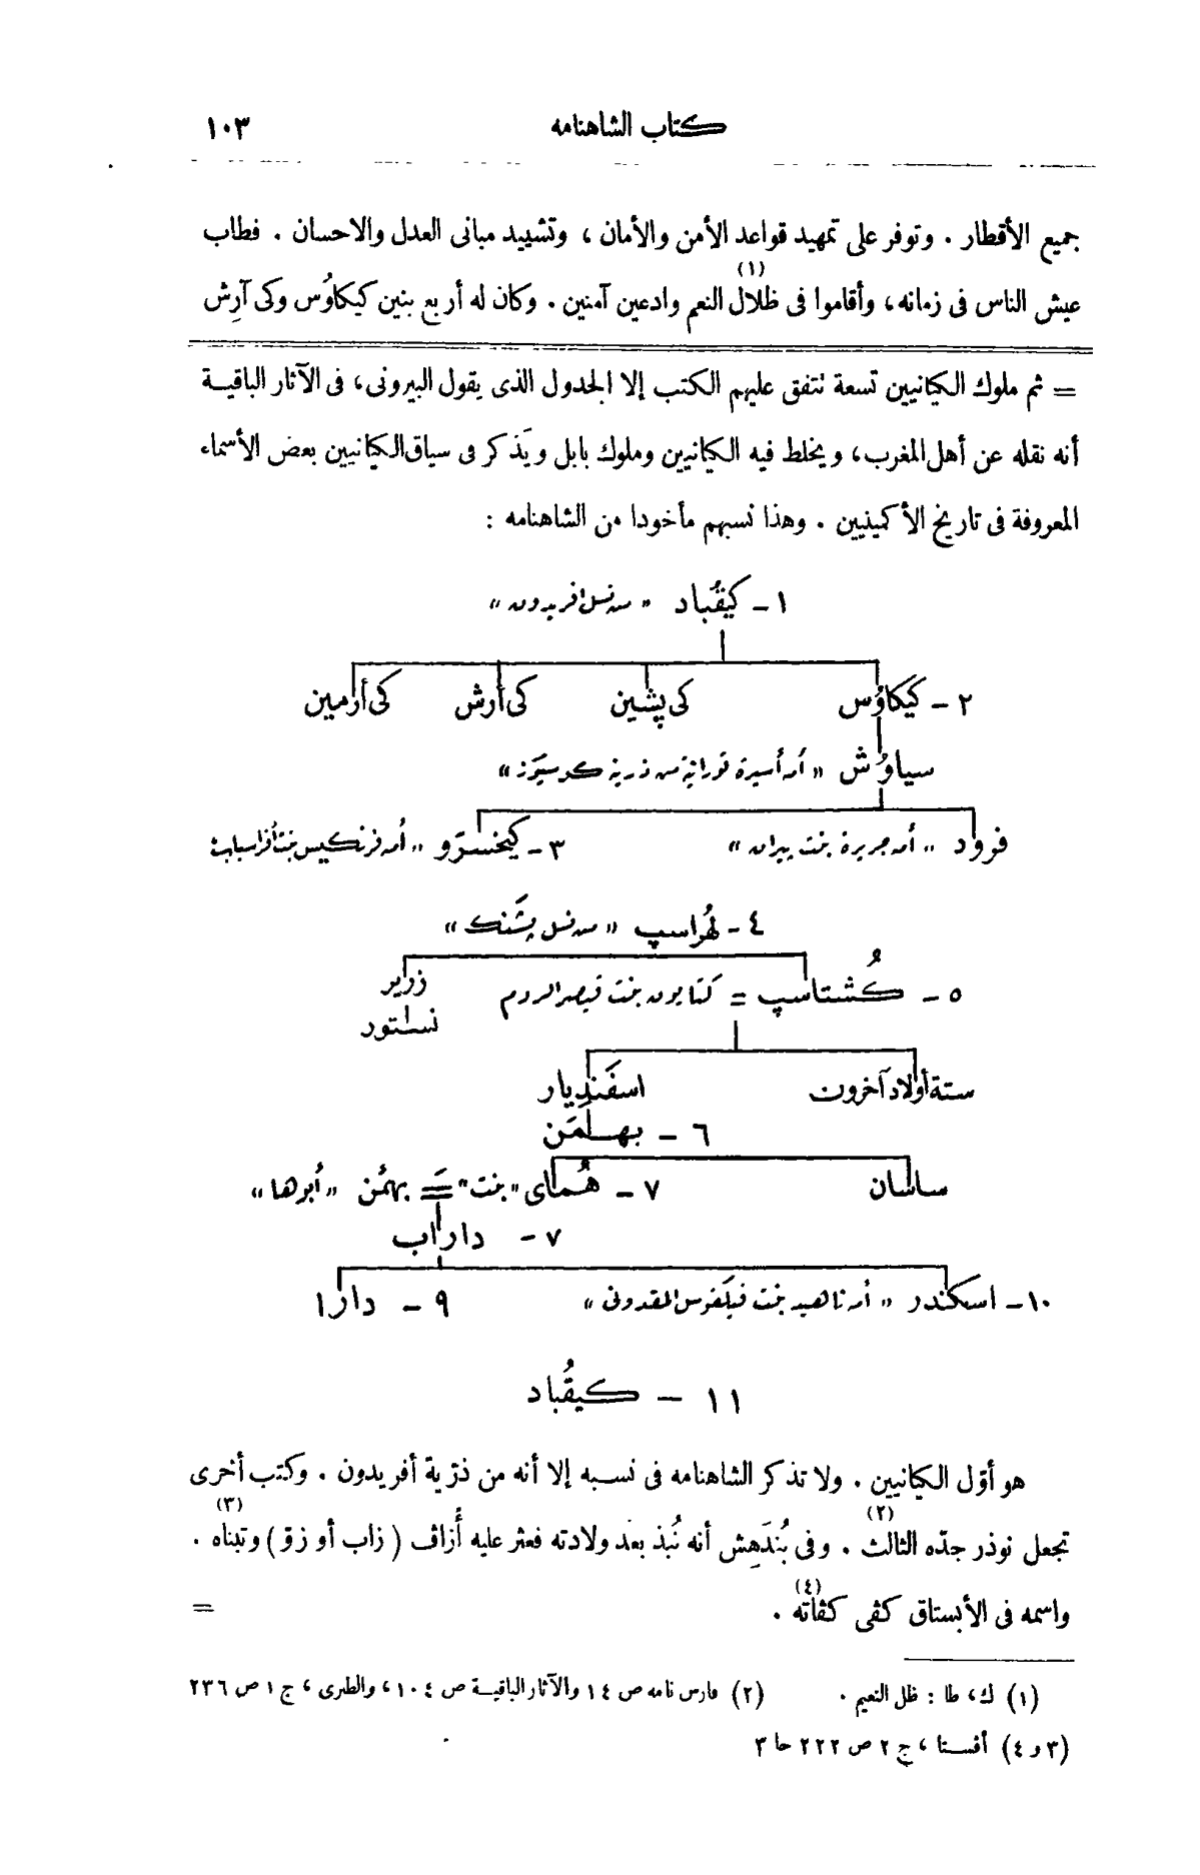 كتاب الشاهنامه ١٠٣
جميع الأقطار . وتوفر على تمهيد قواعد الأمن والأمان ، وتشييد مبانى العدل والاحسان . فطاب
عيش الناس فى زمانه، وأقاموا فى ظلال (١) النعم وادعين آمنين . وكان له أربع بنين كيكاوُس وكى آرِش
= ثم ملوك الكيانيين تسعة تتفق عليهم الكتب إلا الجدول الذى يقول البيرونى، فى الآثار الباقيـة
أنه نقله عن أهل المغرب، ويخلط فيه الكيانيين وملوك بابل ويَذكر فى سياق الكيانيين بعض الأسماء
المعروفة فى تاريخ الأكمينيين . وهذا نسبهم مأخودا من الشاهنامه :
١ - كيقُباد « من نسل افريدون »
٢ - كَيكاوُس كى پشين كى أرش كى أرمين
سياوُش « أمه أسيرة تورانية من ذرية كرسيَوز »
فرود « أمه جريرة بنت پيران » ٣ - كيخسرَو « أمه فرنكيس بنت أفراسياب »
٤ - لهُراسپ « من نسل پشَنك »
٥ - كُشتاسپ = كتايون بنت قيصر الروم زرير
نستور
ستة أولاد آخرون اسفَنديار
٦ - بهمَن
ساسان ٧ - هُماى "بنت" = بهمَن « أبوها »
٧ - داراب
١٠ - اسكندر « أمه ناهيد بنت فيلَقوس المقدونى » ٩ - دارا
١١ - كيقُباد
هو أوّل الكيانيين . ولا تذكر الشاهنامه فى نسبه إلا أنه من ذرّية أفريدون . وكتب أخرى
تجعل نوذر جدّه الثالث (٢) . وفى بُندَهِش أنه نُبذ بعد ولادته فعثر عليه أُزاف ( زاب أو زوّ ) وتبناه (٣) .
واسمه فى الأبستاق كڤى كڤاته (٤) . =
(١) ك، طا : ظل النعيم . (٢) فارس نامه ص ١٤ والآثار الباقيـة ص ١٠٤، والطبرى ، ج ١ ص ٢٣٦
(٣ و ٤) أفستا ، ج ٢ ص ٢٢٢ حا ٣